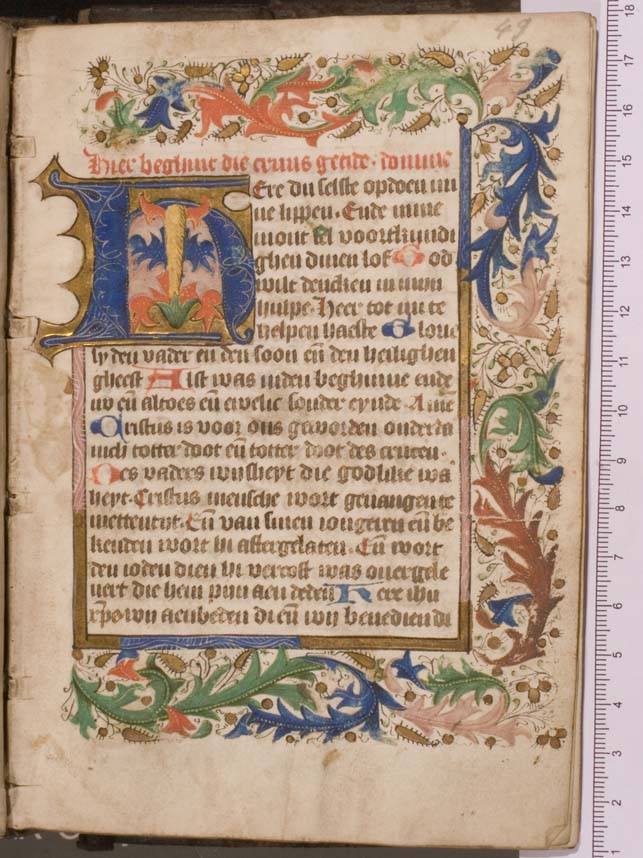 49
Hier beghint die cruus getide. domine
HEre du selste opdoen mi
ne lippen. Ende mine
mont sel voortkundi
ghen dinen lof God
wilt dencken in mijn
hulpe. Heer tot mi te
helpen haeste Glorie
sy den vader en̄ den soon en̄ den heilighen
gheest Alst was inden beghinne ende
nv en̄ altoes en̄ ewelic sonder eynde. Ame
Cristus is voor ons geworden onderda
nich totter doot en̄ totter doot des crucen.
Des vaders wijsheyt die godlike wa
heyt. Cristus mensche wort geuangen te
mettentijt. En̄ van sinen iongeren en̄ be
kenden wort hi aftergelaten. En̄ wort
den ioden dien hi vercoft was ouergele
uert die hem pijn aen deden Here ihu
xp̄e wij aenbeden di en̄ wij benedien di
18
17
16
15
14
13
12
11
10
9
8
7
6
5
4
3
2
1